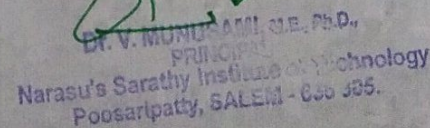 Dr. V. MUNUSAMI, M.E., Ph.D.,
PRINCIPAL
Narasu's Sarathy Institute of Technology
Poosaripatty, SALEM - 636 305.